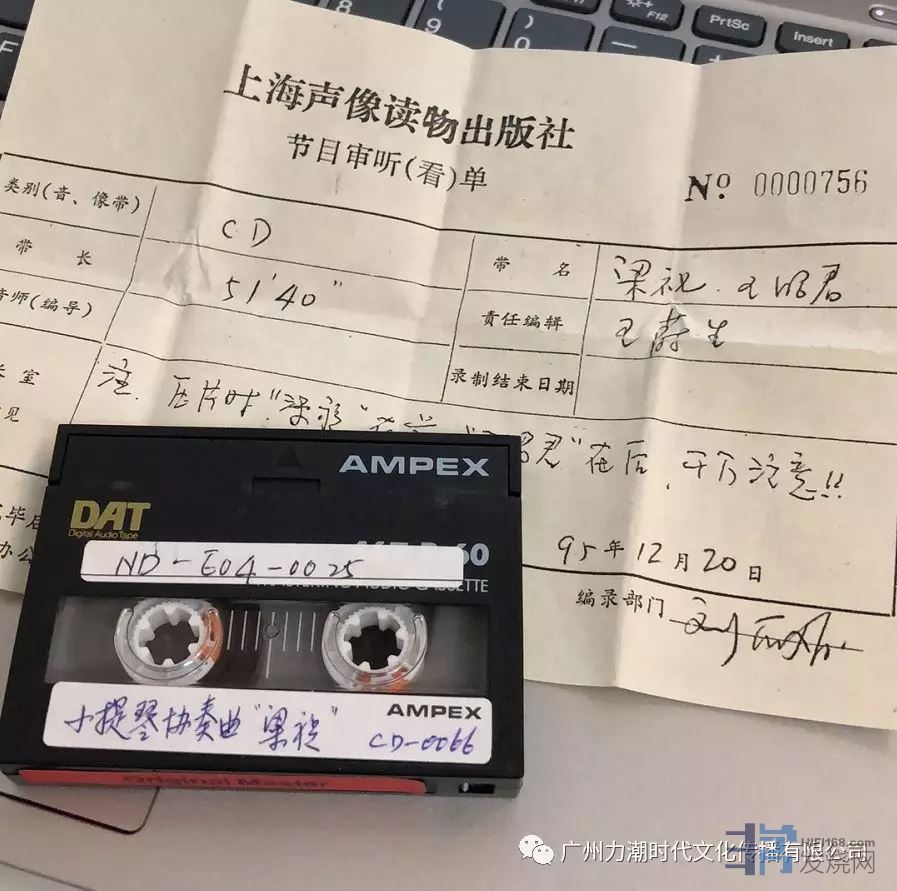 8
9
0
F12
PrtSc
Insert
F
上海声像读物出版社
节目审听(看)单
Nº 0000756
类别(音、像带)
CD
带 长
51'40"
带 名
梁祝.王昭君
音师(编导)
责任编辑
王蔚生
录制结束日期
室
见
注. 压片时:"梁祝"在前
昭君"在后,千万注意!!
毕后
办公
95年12月20日
编录部门
AMPEX
DAT
Digital Audio Tape
60
ND-E04-0025
AUDIO CASSETTE
AMPEX
小提琴协奏曲"梁祝"
CD-0066
Original Master
广州力潮时代文化传播有限公司
HIFI168.com
发烧网